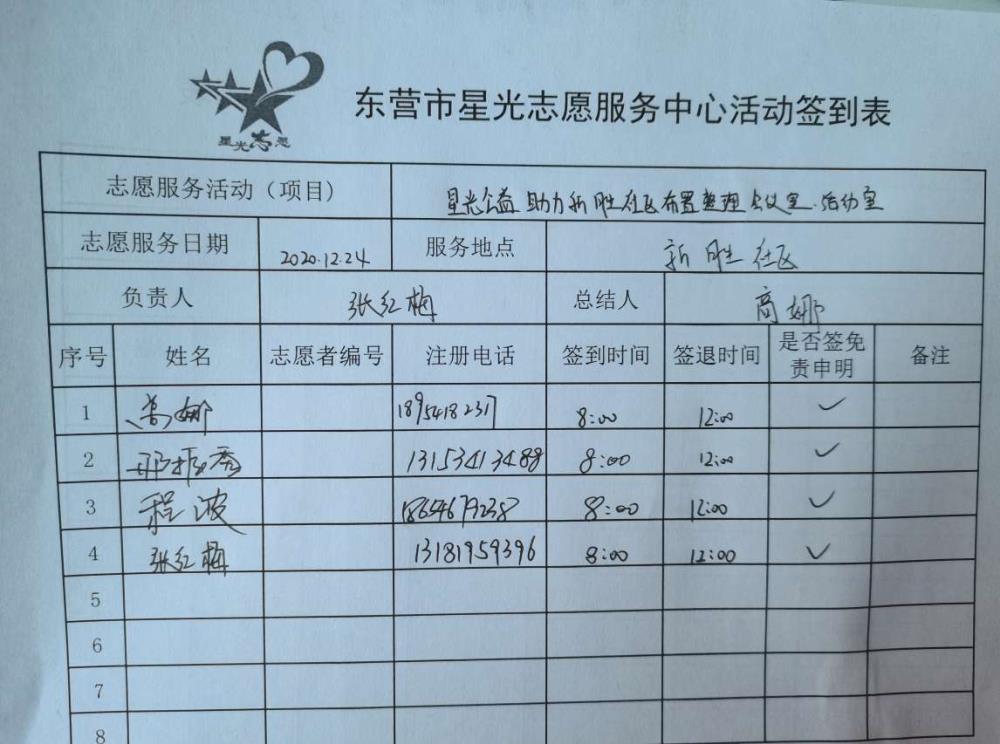 星光志愿
东营市星光志愿服务中心活动签到表
志愿服务活动（项目） 星光公益助力新胜社区布置整理会议室.活动室
志愿服务日期 2020.12.24 服务地点 新胜社区
负责人 张红梅 总结人 商娜
序号 姓名 志愿者编号 注册电话 签到时间 签退时间 是否签免责申明 备注
1 商娜 1895418231 8:00 12:00 ✓
2 振秀 13153413488 8:00 12:00 ✓
3 程波 18654679238 8:00 12:00 ✓
4 张红梅 13181959396 8:00 12:00 ✓
5
6
7
8